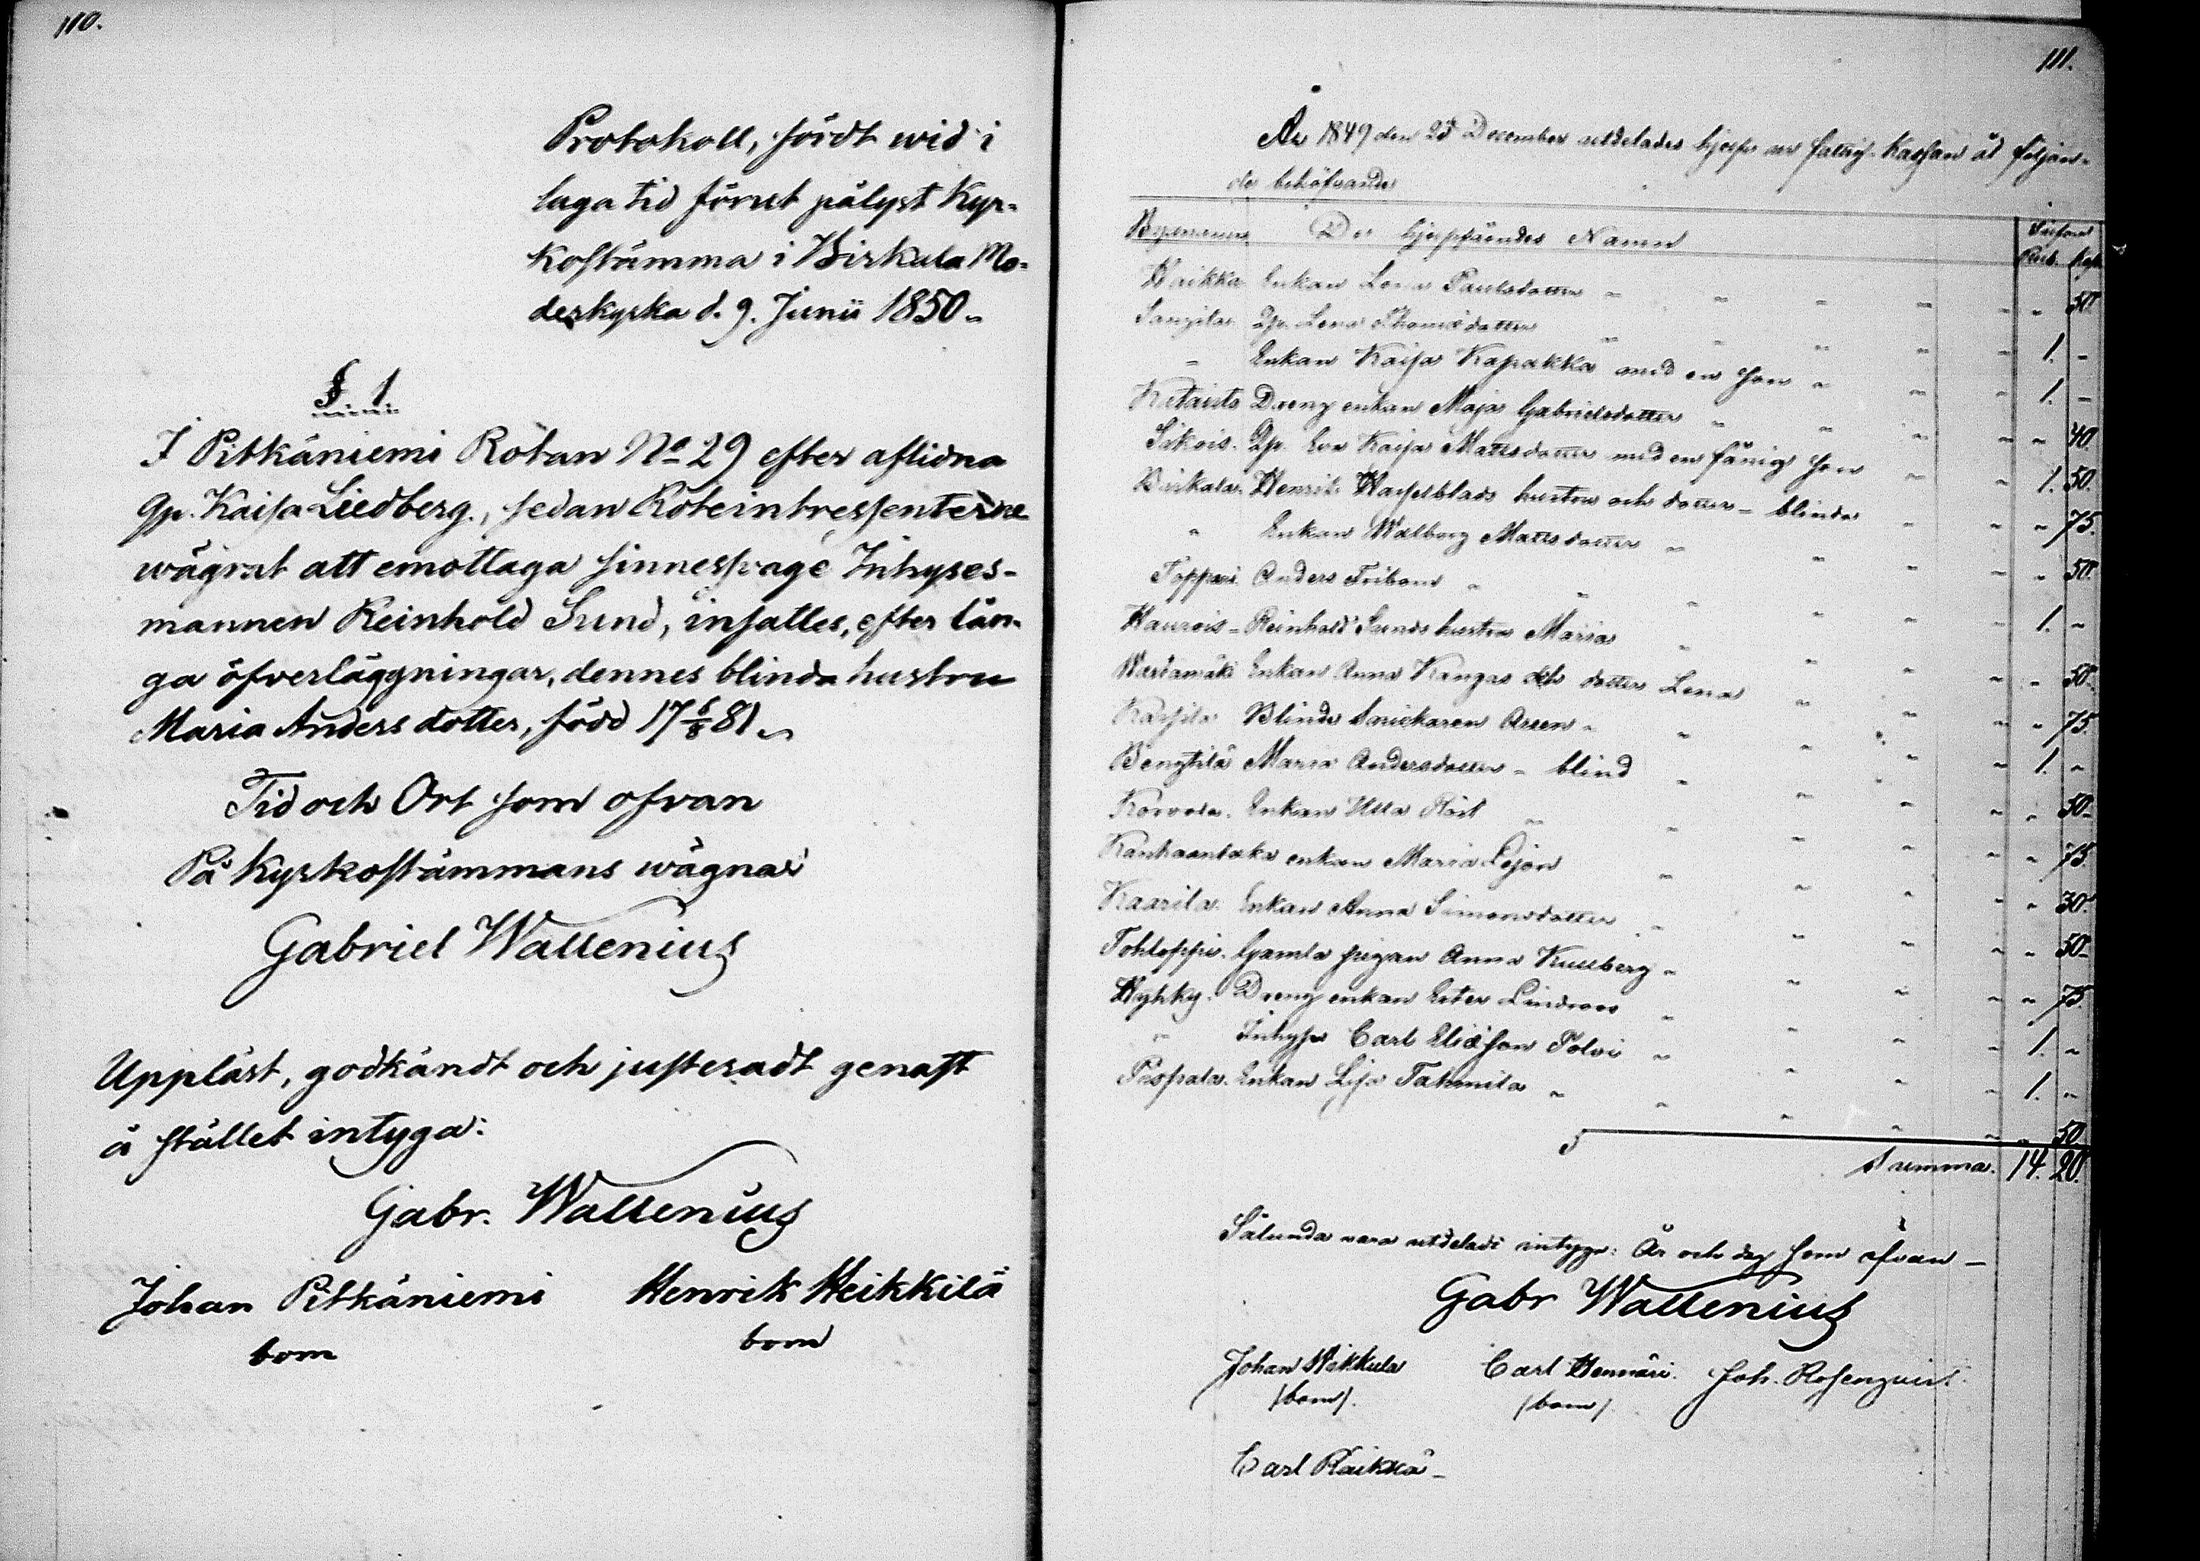 110.
Protokoll, fördt wid i
laga tid förut pålyst Kyr-
kostämma i Birkala Mo-
derkyrka d. 9. Junii 1850 -
§ 1
I Pitkäniemi Rotan No 29 efter aflidna
Gp. Kaisa Liedberg., sedan Roteintressenterne
wägrat att emottaga sinnessvage Inhyses-
mannen Reinhold Sund, insattes, efter län-
ga öfverläggningar, dennes blinda hustru
Maria Anders dotter, född 17 6/8 81
Tid och Ort som ofvan
På Kyrkostämmans wägnar
Gabriel Wallenius
Uppläst, godkändt och justeradt genast
å stället intyga:
Gabr. Wallenius
Johan Pitkäniemi Henrik Heikkilä
bom bom
111.
År 1849 den 23 December utdelades hjelp ur fattig-Kassan åt följan-
de behöfvande
Bynamn De hjelpsökandes Namn
Rub. Kop.
Haikka Enkan Lena Paulsdotter " " " " " " 50.
Lena Thomædotter " " " " " 1. -
" Enkan Kaisa Kapakka med en son " " " 1. -
Dreng enkan Maja Gabrielsdotter " " " " " 40.
Gp. Eva Kaisa Mattsdotter med en fånig son " " 1. 50.
Birkala. Henrik Hasselblads hustru och dotter - blinda " " " 75.
" Enkan Walborg Mattsdotter " " " " " 50.
Toppari Anders Fribom " " " " " 1. -
Reinhold Sunds hustru Maria " " " " " 50.
Enkan Anna Kangas och dotter Lena " " " " 75.
Blinde Snickaren " " " " 1. "
Bengtilä Maria Andersdotter - blind " " " " " 50.
Korvola. Enkan Ulla " " " " " 75
enkan Maria Lejon " " " " " 30.
Kaarila. Enkan Anna Simonsdotter " " " " " 50.
Tohloppi. Gamla pigan Anna Kullberg " " " " " 75.
Hyhky. Dreng enkan Ester Lindroos " " " " 1. "
" Inhyses Carl Eliæson Polvi " " " " 1. "
Pispala. Enkan Lisa Tahmila " " " " " 50
Summa. 14. 20.
Sålunda vara utdeladt intyga: År och dag som ofvan -
Gabr Wallenius
Johan Nikkula Carl Hennäri. Joh. Rosenqvist.
/bom/. /bom/.
Carl Räikkä -